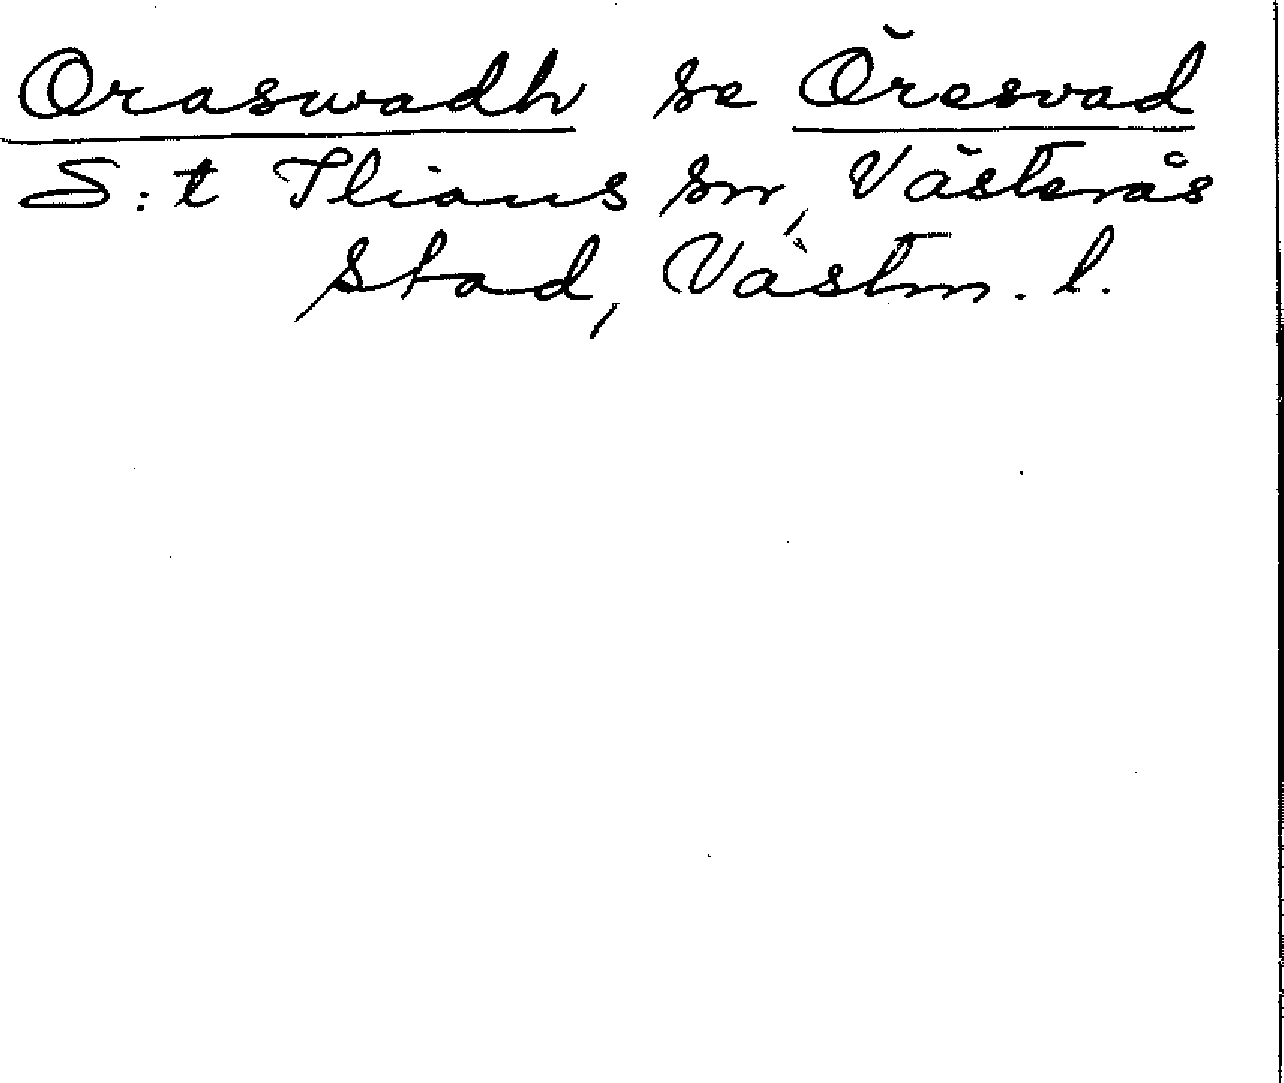 Oraswadh se Öresvad
S:t Ilians sn, Västerås
stad, Västm. l.